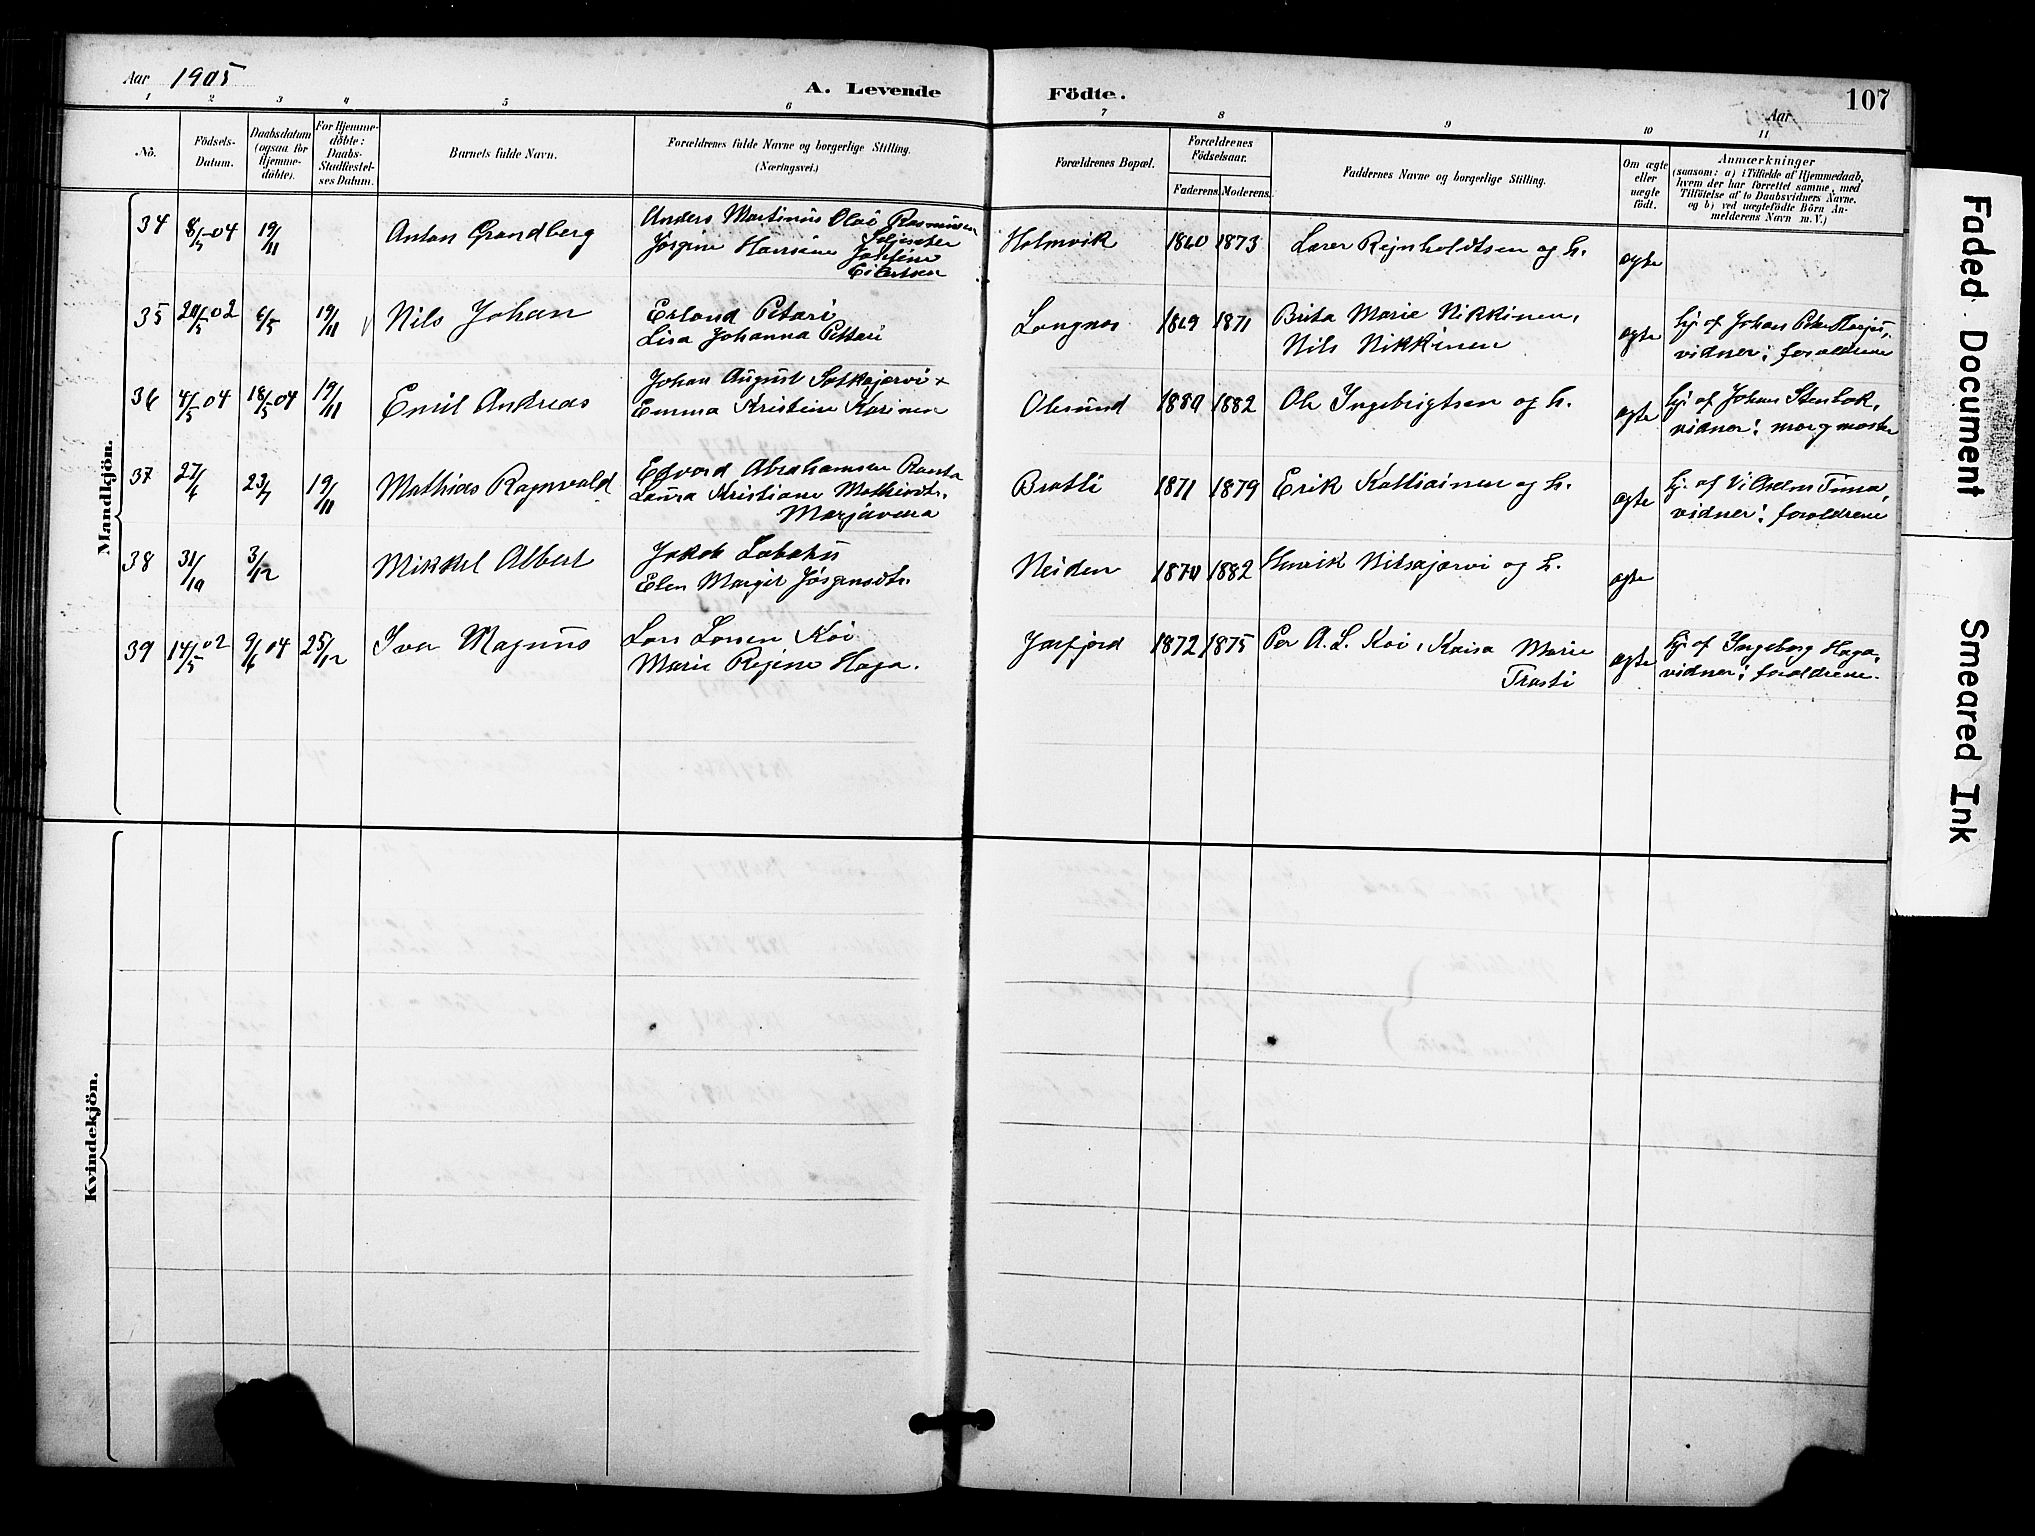 Aar 1905
A. Levende Födte.
107
Aar
1 2 3 4 5 6 7 8 9 10 11
No. Födsels-Datum. Daabsdatum (ogsaa for Hjemme-döbte). For Hjemme-döbte: Daabs-Stadfæstel-ses Datum. Barnets fulde Navn. Forældrenes fulde Navne og borgerlige Stilling. (Næringsvei.) Forældrenes Bopæl. Forældrenes Födselsaar. Faderens. Moderens. Faddernes Navne og borgerlige Stilling. Om ægte eller uægte födt. Anmærkninger (saasom: a) i Tilfælde af Hjemmedaab, hvem der har forrettet samme, med Tilföielse af to Daabsvidners Navne. og b) ved uægtefödte Börn Anmelderens Navn m. V.)
Mandkjön.
34 8/7 04 19/11 Anton Grandberg Anders Martinus Olai Rasmusen
Jörgine Hansine Josefine
Eilertsen
Holmvik 1860 1873 Lærer Rejnholdtsen og h. ægte
35 20/5 02 6/5 19/11 Nils Johan Erland Petari
Lisa Johanna Pettari
Langnes 1869 1871 Brita Marie Nikkinen,
Nils Nikkinen
ægte hj. af Johan Peter
vidner: forældrene
36 4/5 04 18/5 04 19/11 Emil Andreas Johan August Satkajærvi +
Emma Kristine Karinen
1880 1882 Ole Ingebrigtsen og h. ægte hj. af Johan Stenbak,
vidner: mor og moster
37 27/6 23/7 19/11 Mathias Ragnvald Edvard Abrahamsen Ranta
Laura Kristiane Mathisdtr.
Marjavena
Bratli 1871 1879 Erik Kattiainen og h. ægte hj. af Vilhelm
vidner: forældrene
38 31/10 3/12 Mikkel Albert Jakob Labahu
Elen Margit Jörgensdtr.
Neiden 1870 1882 Henrik Nilsajærvi og h. ægte
39 14/5 02 9/6 04 25/12 Iver Magnus Lars Larsen Koi
Marie Regine Haga.
Jarfjord 1872 1875 Per A. L. Koi, Kaisa Marie
Trasti
ægte hj. af Ingeborg Haga,
vidner: forældrene.
Kvindekjön.
Faded Document
Smeared Ink